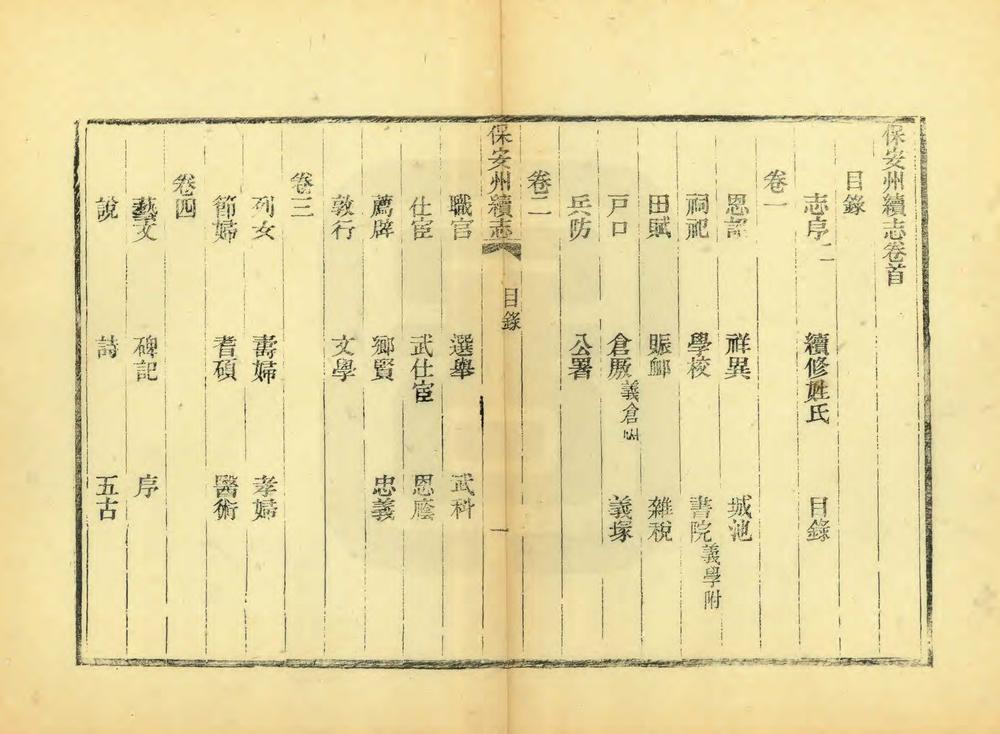 保安州續志卷首
目錄
志序二 續修姓氏 目錄
卷一
恩詔 祥異 城池
祠祀 學校 書院義學附
田賦 賑䘏 雜稅
戸口 倉厫義倉 義塚
兵防 公署
卷二
保安州續志 目錄 一
職官 選舉 武科
仕宦 武仕宦 恩廕
薦辟 鄉賢 忠義
敦行 文學
卷三
列女 壽婦 孝婦
節婦 耆碩 醫術
卷四
藝文 碑記 序
說 詩 五古